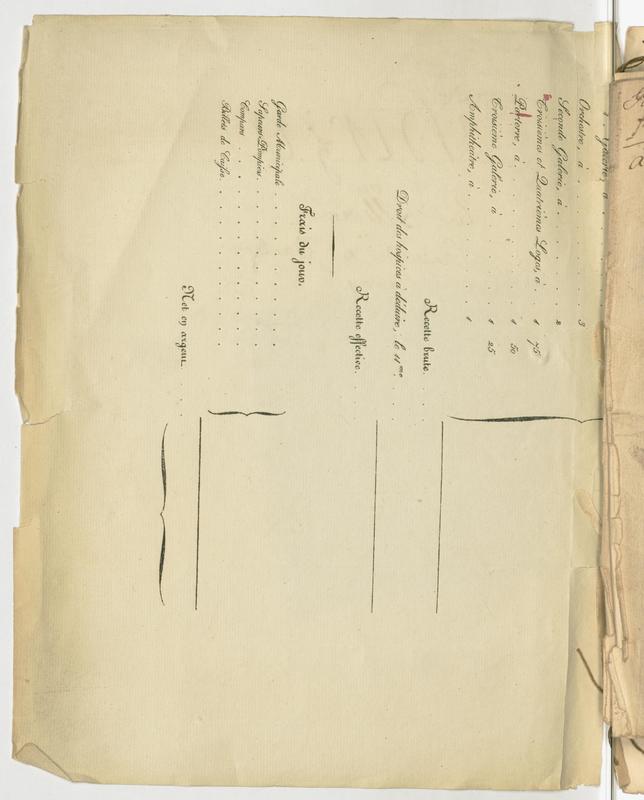 Galerie, à
Orchestre, à . . . . . . . 3
Seconde Galerie, à . . . . . 2
Troisièmes et Quatrièmes Loges, à . 1 75
Parterre, à . . . . . . . 1 50
Troisième Galerie, à . . . . . 1 25
Amphithéatre, à . . . . . . 1
Recette brute. . .
Droit des hospices à déduire, le 11me. . .
Recette effective. . .
Frais du jour.
Garde Municipale . . . . . .
Sapeurs-Pompiers . . . . . . .
Timbres . . . . . . . .
Billets de Caisse . . . . . . .
Net en argent. . .